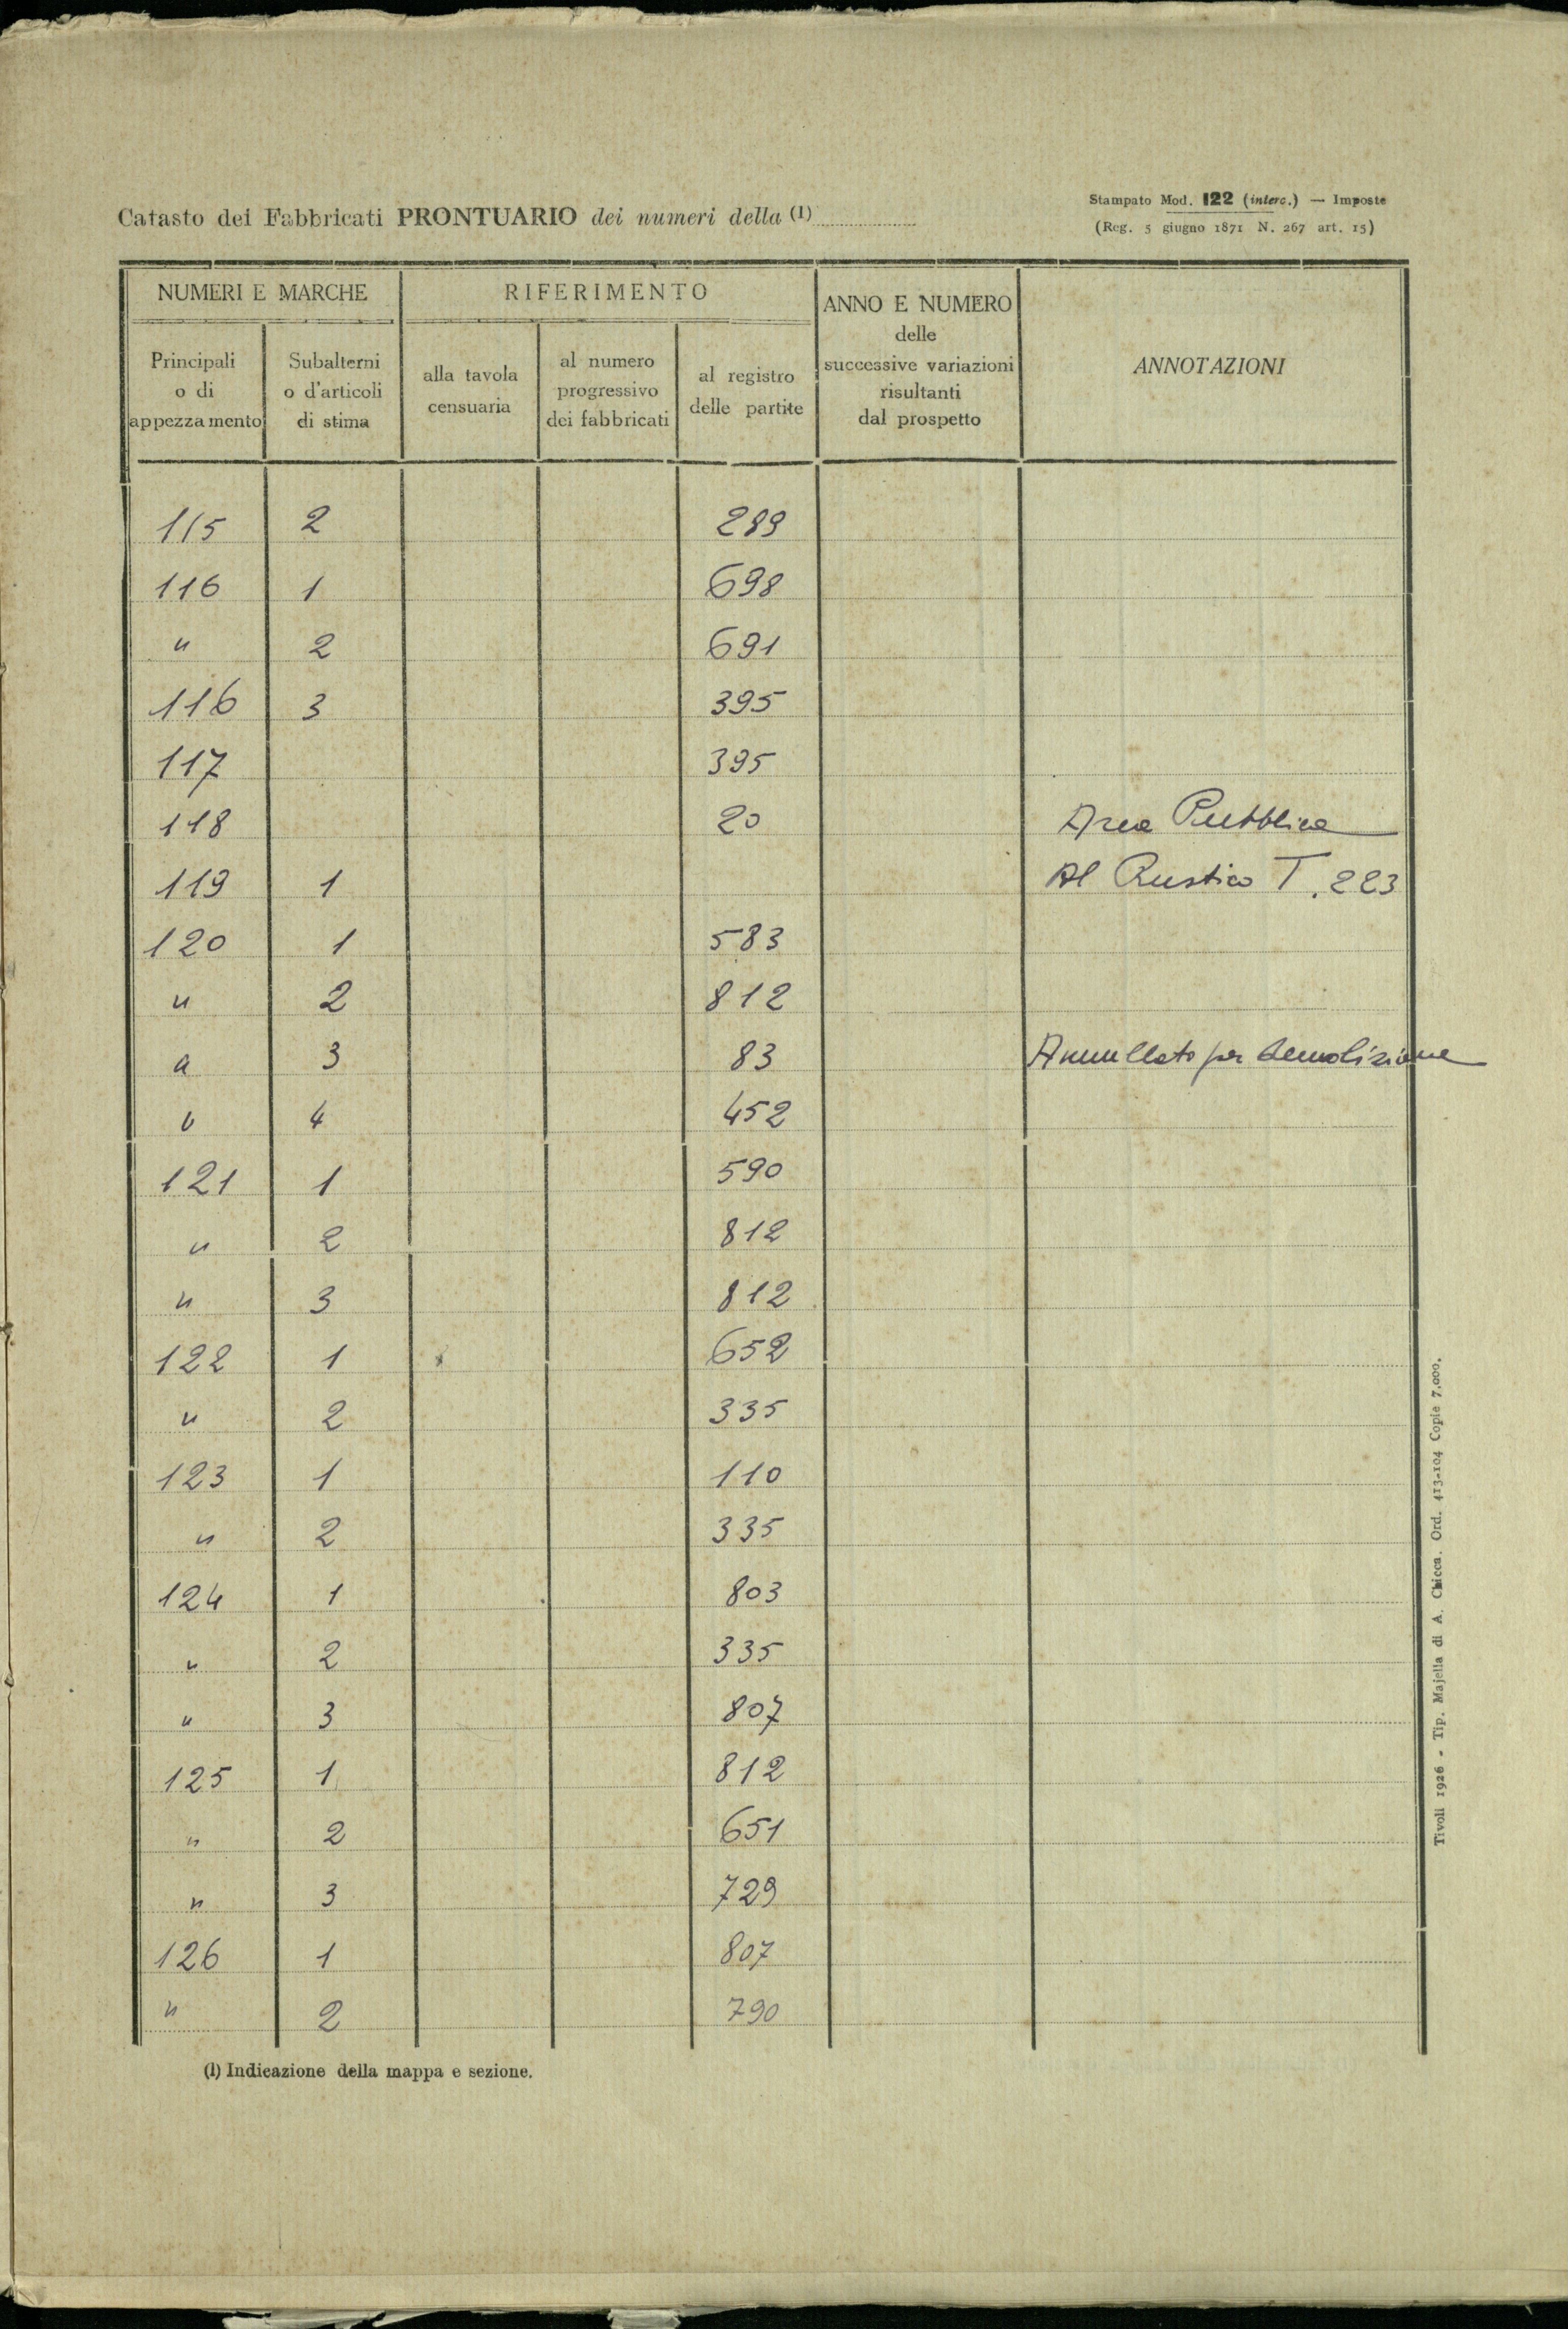 Catasto dei Fabbricati PRONTUARIO dei numeri della (1)
Stampato Mod. 122 (interc.) — Imposte
(Reg. 5 giugno 1871 N. 267 art. 15)
NUMERI E MARCHE
RIFERIMENTO
ANNO E NUMERO
delle
successive variazioni
risultanti
dal prospetto
ANNOTAZIONI
Principali
o di
appezzamento
Subalterni
o d'articoli
di stima
alla tavola
censuaria
al numero
progressivo
dei fabbricati
al registro
delle partite
115 2 289
116 1 698
" 2 691
116 3 395
117 395
118 20 Area Pubblica
119 1 Al Rustico T. 223
120 1 583
" 2 812
" 3 83 Annullato per demolizione
" 4 452
121 1 590
" 2 812
" 3 812
122 1 652
" 2 335
123 1 110
" 2 335
124 1 803
" 2 335
" 3 807
125 1 812
" 2 651
" 3 729
126 1 807
" 2 790
(1) Indicazione della mappa e sezione.
Tivoli 1926 - Tip. Majella di A. Chicca. Ord. 413-104 Copie 7.000.